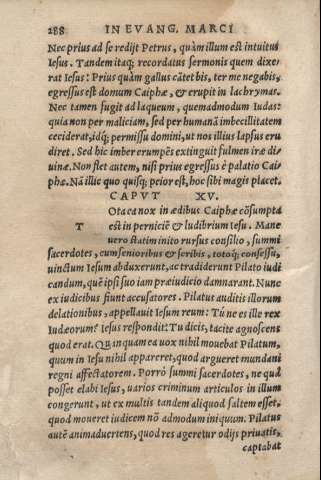 288 IN EVANG. MARCI
Nec prius ad se redijt Petrus, quàm illum est intuitus
Iesus. Tandem itaq; recordatus sermonis quem dixe-
rat Iesus: Prius quàm gallus cãtet bis, ter me negabis,
egressus est domum Caiphæ, & erupit in lachrymas.
Nec tamen fugit ad laqueum, quemadmodum Iudas:
quia non per maliciam, sed per humanã imbecillitatem
ceciderat, idq; permissu domini, ut nos illius lapsus eru
diret. Sed hic imber erumpẽs extinguit fulmen iræ di-
uinæ. Non flet autem, nisi prius egressus è palatio Cai-
phæ. Nã illic quo quisq; peior est, hoc sibi magis placet.
CAPVT XV.
T Ota ea nox in ædibus Caiphæ cõsumpta
est in perniciẽ & ludibrium Iesu. Mane
uero statim inito rursus consilio, summi
sacerdotes, cum senioribus & scribis, totoq; consessu,
uinctum Iesum abduxerunt, ac tradiderunt Pilato iudi
candum, quẽ ipsi suo iam præiudicio damnarant. Nunc
ex iudicibus fiunt accusatores. Pilatus auditis illorum
delationibus, appellauit Iesum reum: Tú ne es ille rex
Iudæorum? Iesus respondit: Tu dicis, tacite agnoscens
quod erat. Quanquam ea uox nihil mouebat Pilatum,
quum in Iesu nihil appareret, quod argueret mundani
regni affectatorem. Porrò summi sacerdotes, ne quà
posset elabi Iesus, uarios criminum articulos in illum
congerunt, ut ex multis tandem aliquod saltem esset,
quod moueret iudicem nõ admodum iniquum. Pilatus
autẽ animaduertens, quod res ageretur odijs priuatis,
captabat